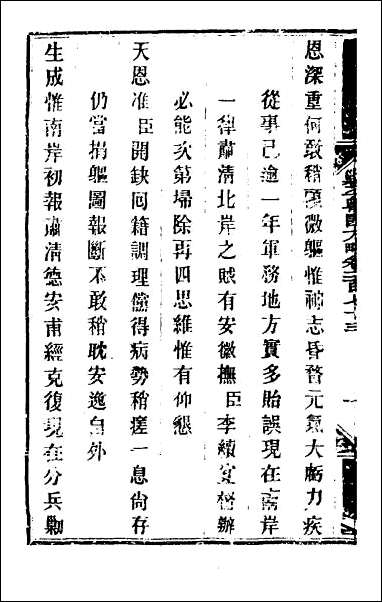 恩深重何敢稍頋微軀惟神志昏瞀元氣大虧力疾
從事已逾一年軍務地方實多貽誤現在南岸
一律肅清北岸之賊有安徽撫臣李續宜督辦
必能次第埽除再四思維惟有仰懇
天恩准臣開缺囘籍調理儻得病勢稍瘥一息尙存
仍當捐軀圖報斷不敢稍耽安逸自外
生成惟南岸初報肅清德安甫經克復現在分兵勦